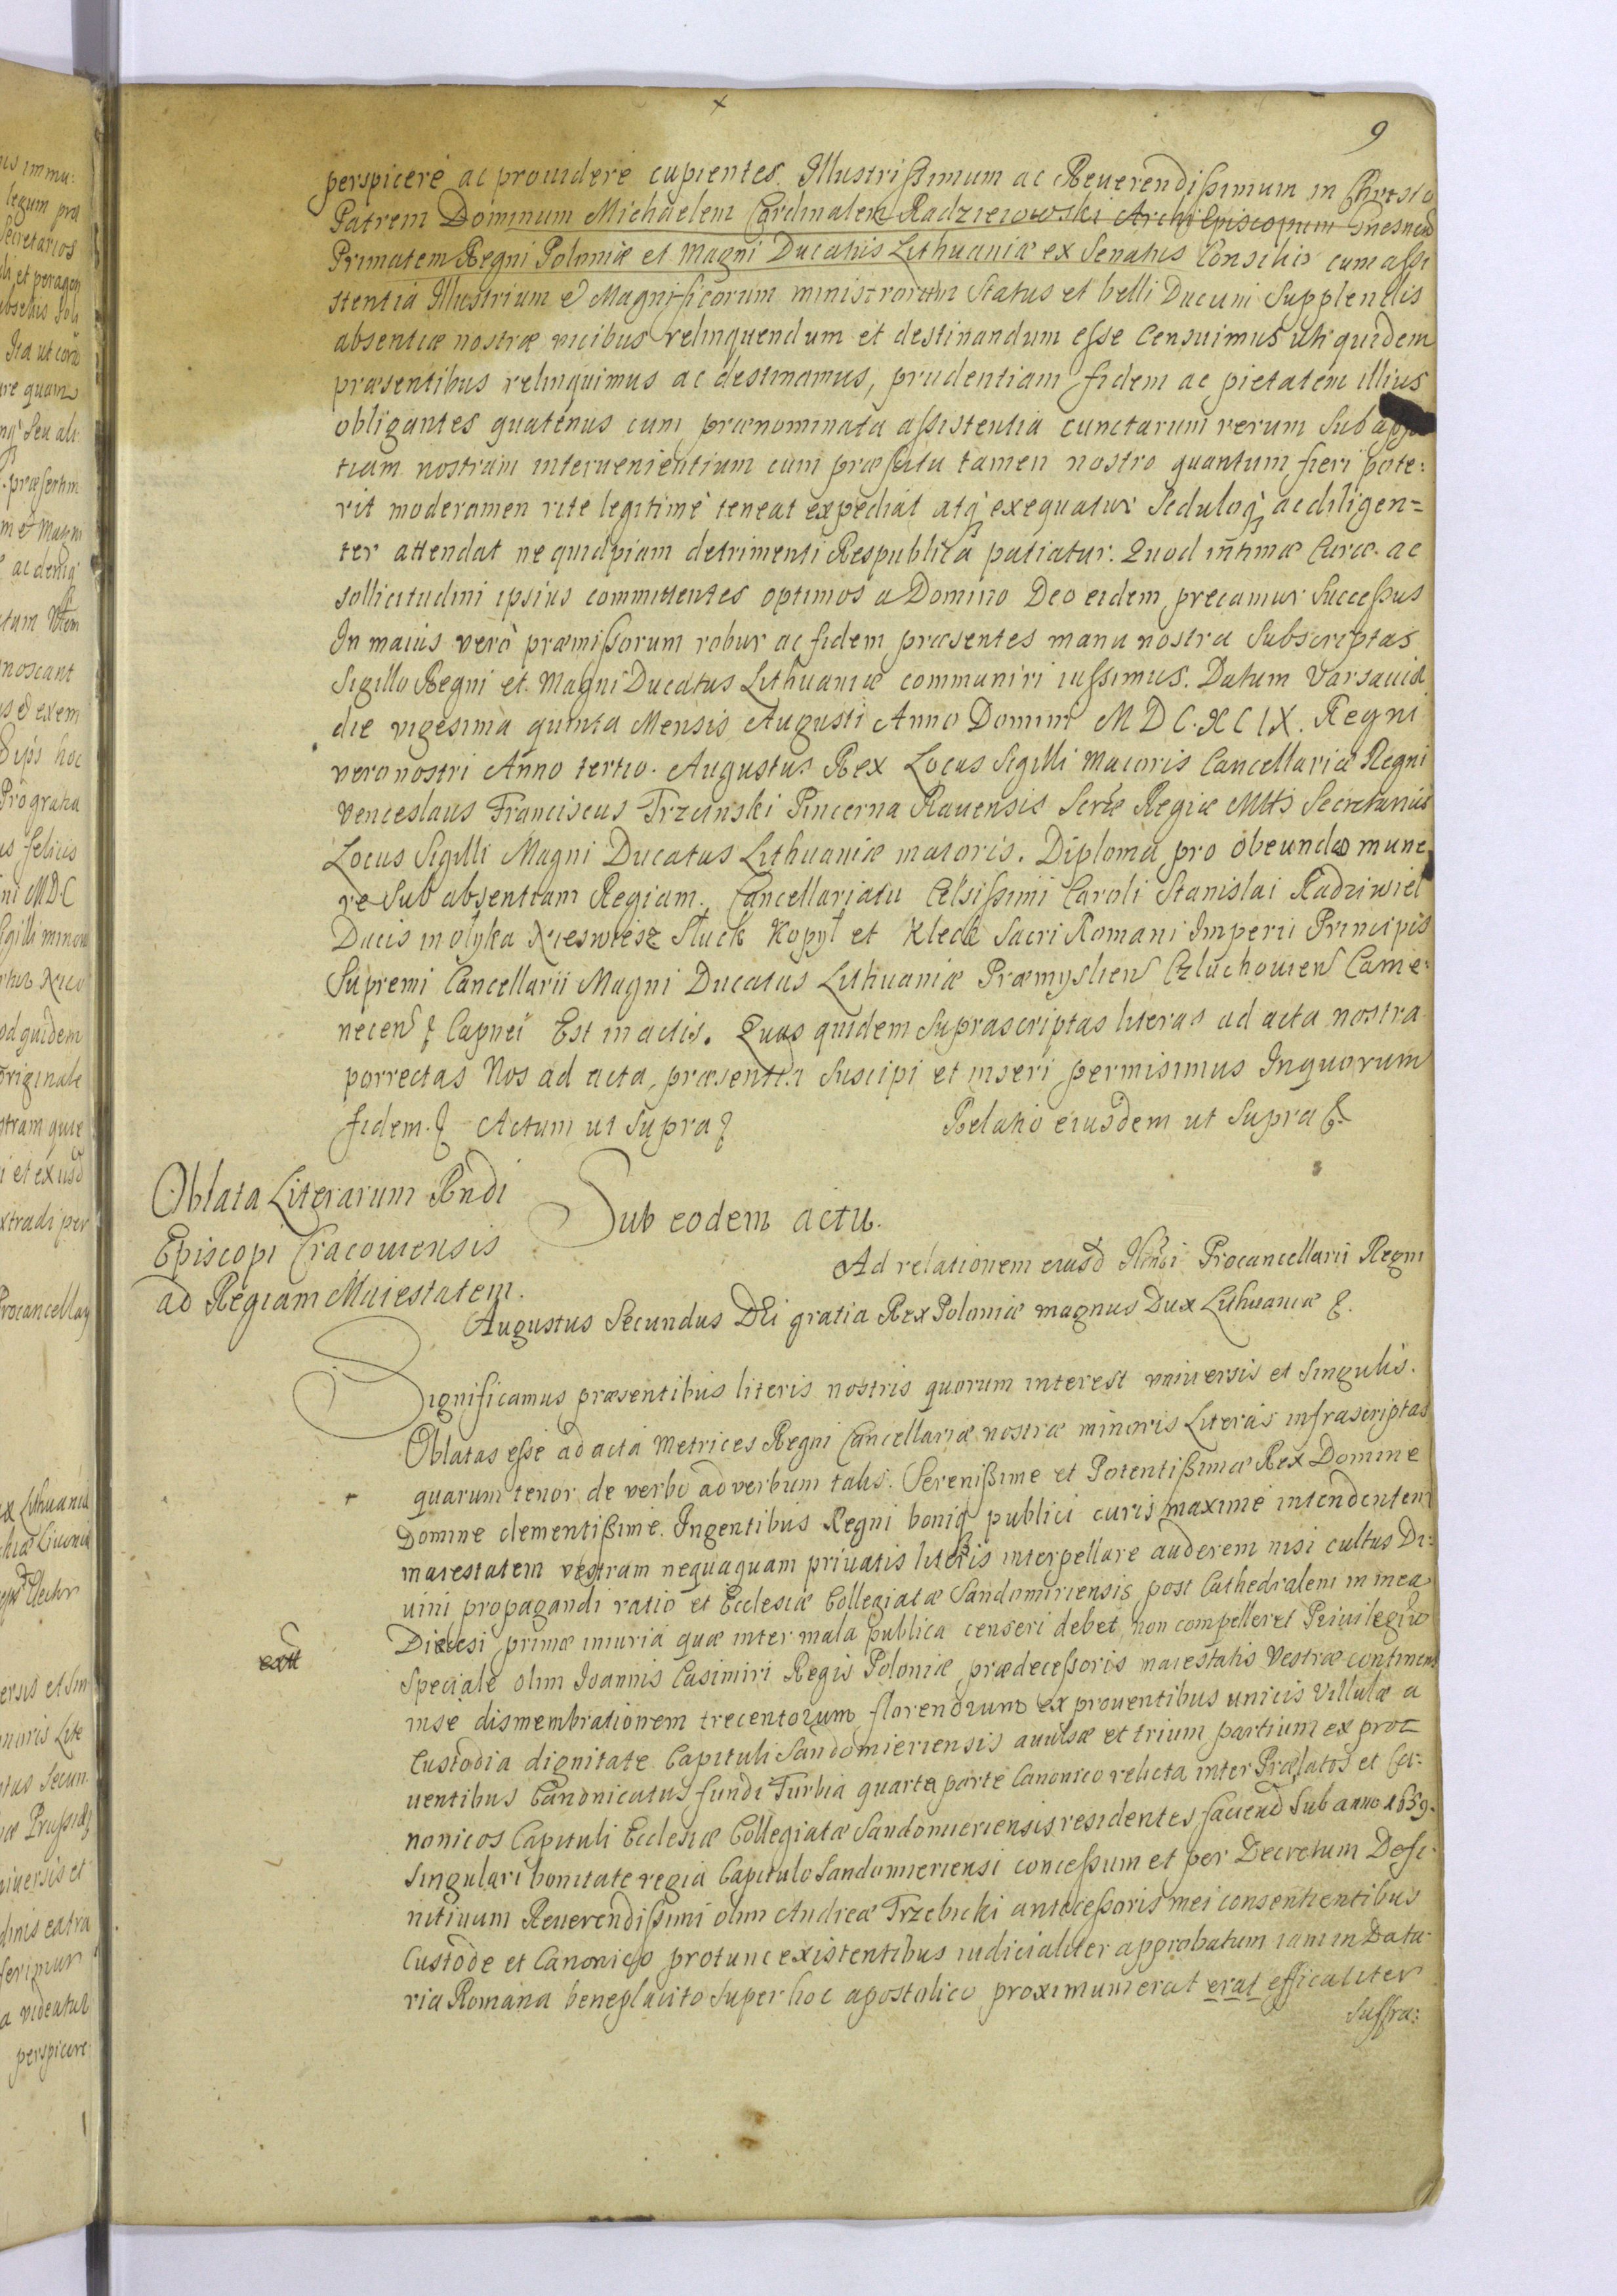 9
perspicere ac prouidere cupientes. Illustrissimum ac Reuerendissimum in Christo
Patrem Dominum Michaelem Cardinalem Radzieiowski Archi Episcopum Gnesnen
Primatem Regni Poloniæ et Magni Ducatus Lithuaniæ ex Senatus Consilio cum assi
stentia Illustrium & Magnificorum ministrorum Status et belli Ducum Supplendis
absentiæ nostræ vicibus relinquendum et destinandum esse Censuimus uti quidem
præsentibus relinquimus ac destinamus, prudentiam fidem ac pietatem illius
obligantes quatenus cum prænominata assistentia cunctarum rerum Sub
tiam nostram interuenientium cum præscitu tamen nostro quantum fieri pote:
rit moderamen rite legitime teneat expediat atq exequatur Seduloq ac diligen=
ter attendat ne quidpiam detrimenti Respublica patiatur. Quod intimæ Curæ ac
sollicitudini ipsius committentes optimos a Domino Deo eidem precamur Successus
In maius verò præmissorum robur ac fidem præsentes manu nostra Subscriptas
Sigillo Regni et Magni Ducatus Lithuaniæ communiri iussimus. Datum Varsauiæ
die vigesima quinta Mensis Augusti Anno Domini MDC.XCIX. Regni
vero nostri Anno tertio. Augustus Rex Locus Sigilli Maioris Cancellariæ Regni
Venceslaus Franciscus Trzcinski Pincerna Rauensis Scræ Regiæ Mttis Secretarius
Locus Sigilli Magni Ducatus Lithuaniæ maioris. Diploma pro obeundo mune
re Sub absentiam Regiam. Cancellariatu Celsissimi Caroli Stanislai Radziwiel
Ducis in olyka Nieswiesz Słuck Kopyl et Kleck Sacri Romani Imperii Principis
Supremi Cancellarii Magni Ducatus Lithuaniæ Præmyslien Człuchouien Came:
necen & Capnei Est in actis. Quas quidem Suprascriptas literas ad acta nostra
porrectas Nos ad acta præsentia Suscipi et inseri permisimus In quorum
fidem. & Actum ut Supra &
Relatio eiusdem ut Supra &
Oblata Literarum Rndi
Episcopi Cracouiensis
ad Regiam Maiestatem.
Sub eodem actu.
Ad relationem eiusd Procancellarii Regni
Augustus Secundus DEi gratia Rex Poloniæ magnus Dux Lithuaniæ &.
Significamus præsentibus literis nostris quorum interest vniuersis et Singulis.
Oblatas esse ad acta Metrices Regni Cancellariæ nostræ minoris Literas infrascriptas
quarum tenor de verbo ad verbum talis. Serenissime et Potentissime Rex Domine
Domine clementissime. Ingentibus Regni boniq publici curis maxime intendentem
maiestatem vestram nequaquam priuatis literis interpellare auderem nisi cultus Di:
uini propagandi ratio et Ecclesiæ Collegiatæ Sandomiriensis post Cathedralem in mea
Diœcesi primæ iniuria quæ inter mala publica censeri debet, non compelleret Priuilegiu
Speciale olim Ioannis Casimiri Regis Poloniæ prædecessoris maiestatis Vestræ continens
in se dismembrationem trecentorum florenorum ex prouentibus unicis Villulæ a
Custodia dignitate Capituli Sandomieriensis auulsæ et trium partium ex pro
uentibus Canonicatus fundi Turbia quarta parte Canonico relicta inter Prælatos et Ca:
nonicos Capituli Ecclesiæ Collegiatæ Sandomieriensis residentes, faciend Sub anno 1659.
Singulari bonitate regia Capitulo Sandomieriensi concessum et per Decretum Defi:
nitiuum Reuerendissimi olim Andreæ Trzebicki antecessoris mei consentientibus
Custode et Canonico protunc existentibus iudicialiter approbatum iam in Data:
ria Romana beneplacito Super hoc apostolico proximum erat erat efficaciter
Suffra: